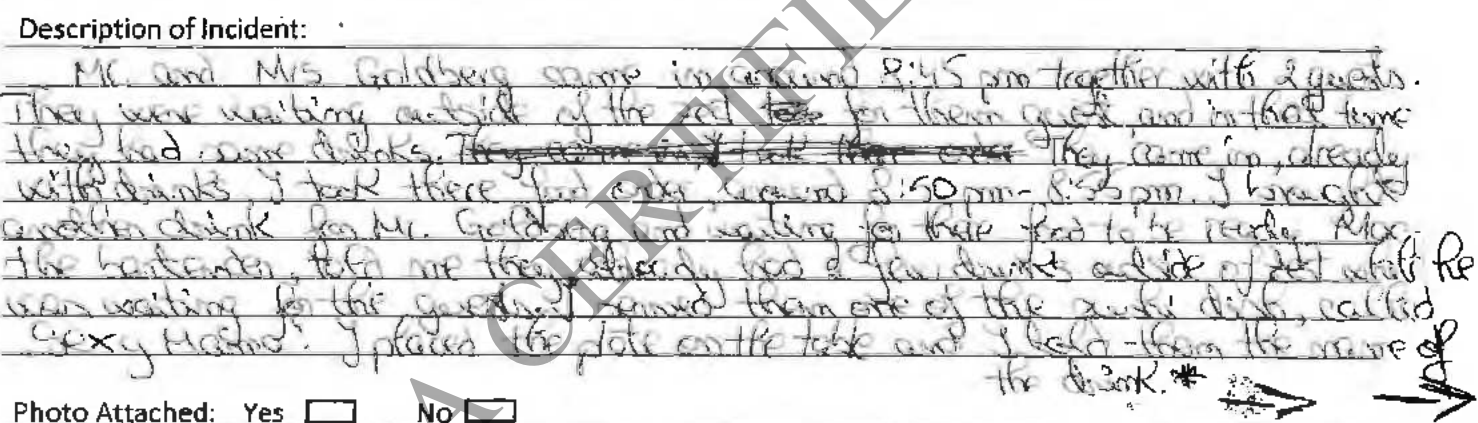 Description of Incident:
Mr. and Mrs Goldberg came in around 8:45 pm together with 2 guests.
They were waiting outside of the rest for them guest and in that time
they had some drinks. They came in already
with drinks. I took there food order around 8:50 pm - 8:55 pm. I brought
another drink for Mr. Goldberg and waiting for there food to be ready.
the bartender, told me they already had a few drinks outside of rest whilt he
was waiting for the guests. I served them one of the sushi dish, called
"Sexy ". I placed the plate on the table and I told them the name of
the drink. *
Photo Attached: Yes No
A CERTIFIE